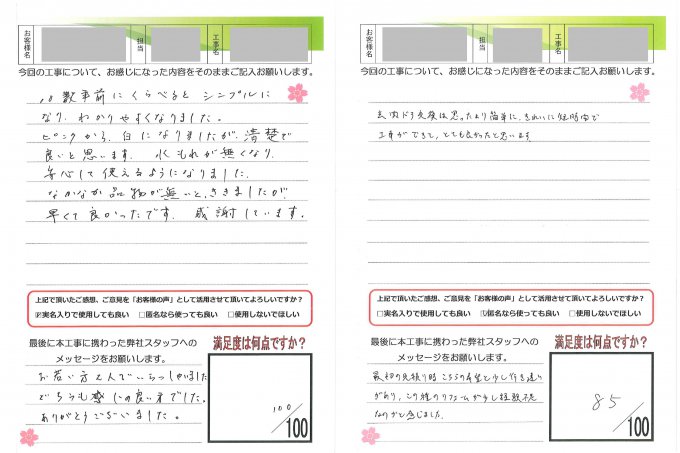 お客様名
担当
工事名
今回の工事について、お感じになった内容をそのままご記入お願いします。
数年前にくらべると シンプルに
なり、わかりやすくなりました。
ピンクから、白になりましたが、清楚で
良いと思います。 水もれが無くなり、
安心して使えるようになりました。
なかなか品物が無いと、ききましたが、
早くて良かったです。 感謝しています。
上記で頂いたご感想、ご意見を「お客様の声」として活用させて頂いてよろしいですか?
☑実名入りで使用しても良い □匿名なら使っても良い □使用しないでほしい
最後に本工事に携わった弊社スタッフへの
メッセージをお願いします。
お若い方2人でいらっしゃいました
どちらも感じの良い方でした。
ありがとうございました。
満足度は何点ですか?
100
/100
お客様名
担当
工事名
今回の工事について、お感じになった内容をそのままご記入お願いします。
玄関ドア交換は思ったより簡単に、きれいに短時間で
工事ができて、とても良かったと思います
上記で頂いたご感想、ご意見を「お客様の声」として活用させて頂いてよろしいですか?
□実名入りで使用しても良い ☑匿名なら使っても良い □使用しないでほしい
最後に本工事に携わった弊社スタッフへの
メッセージをお願いします。
最初の見積り時こちらの希望と少し行き違い
があり、この種のリフォームが少し経験不足
なのかと感じました。
満足度は何点ですか?
85
/100